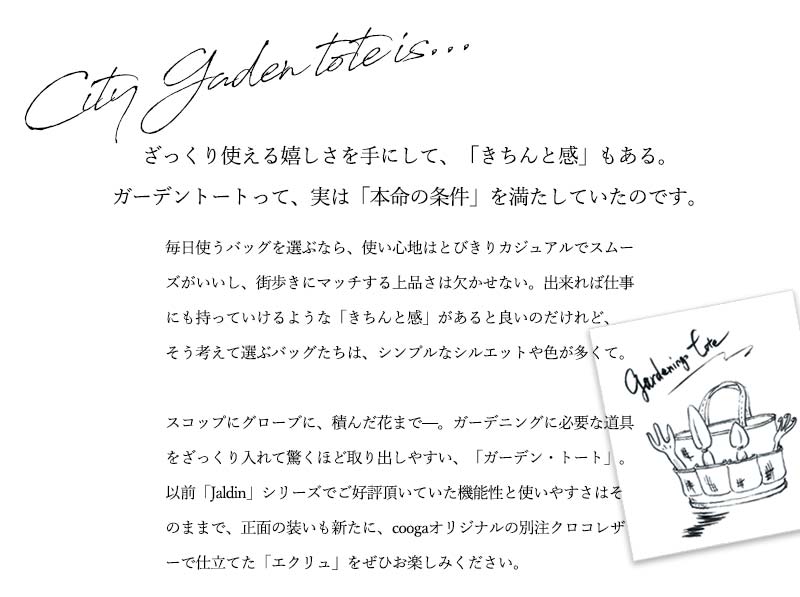 City Gaden tote is...
ざっくり使える嬉しさを手にして、「きちんと感」もある。
ガーデントートって、実は「本命の条件」を満たしていたのです。
毎日使うバッグを選ぶなら、使い心地はとびきりカジュアルでスムー
ズがいいし、街歩きにマッチする上品さは欠かせない。出来れば仕事
にも持っていけるような「きちんと感」があると良いのだけれど、
そう考えて選ぶバッグたちは、シンプルなシルエットや色が多くて。
スコップにグローブに、積んだ花まで―。ガーデニングに必要な道具
をざっくり入れて驚くほど取り出しやすい、「ガーデン・トート」。
以前「Jaldin」シリーズでご好評頂いていた機能性と使いやすさはそ
のままで、正面の装いも新たに、coogaオリジナルの別注クロコレザ
ーで仕立てた「エクリュ」をぜひお楽しみください。
Gardenings tote